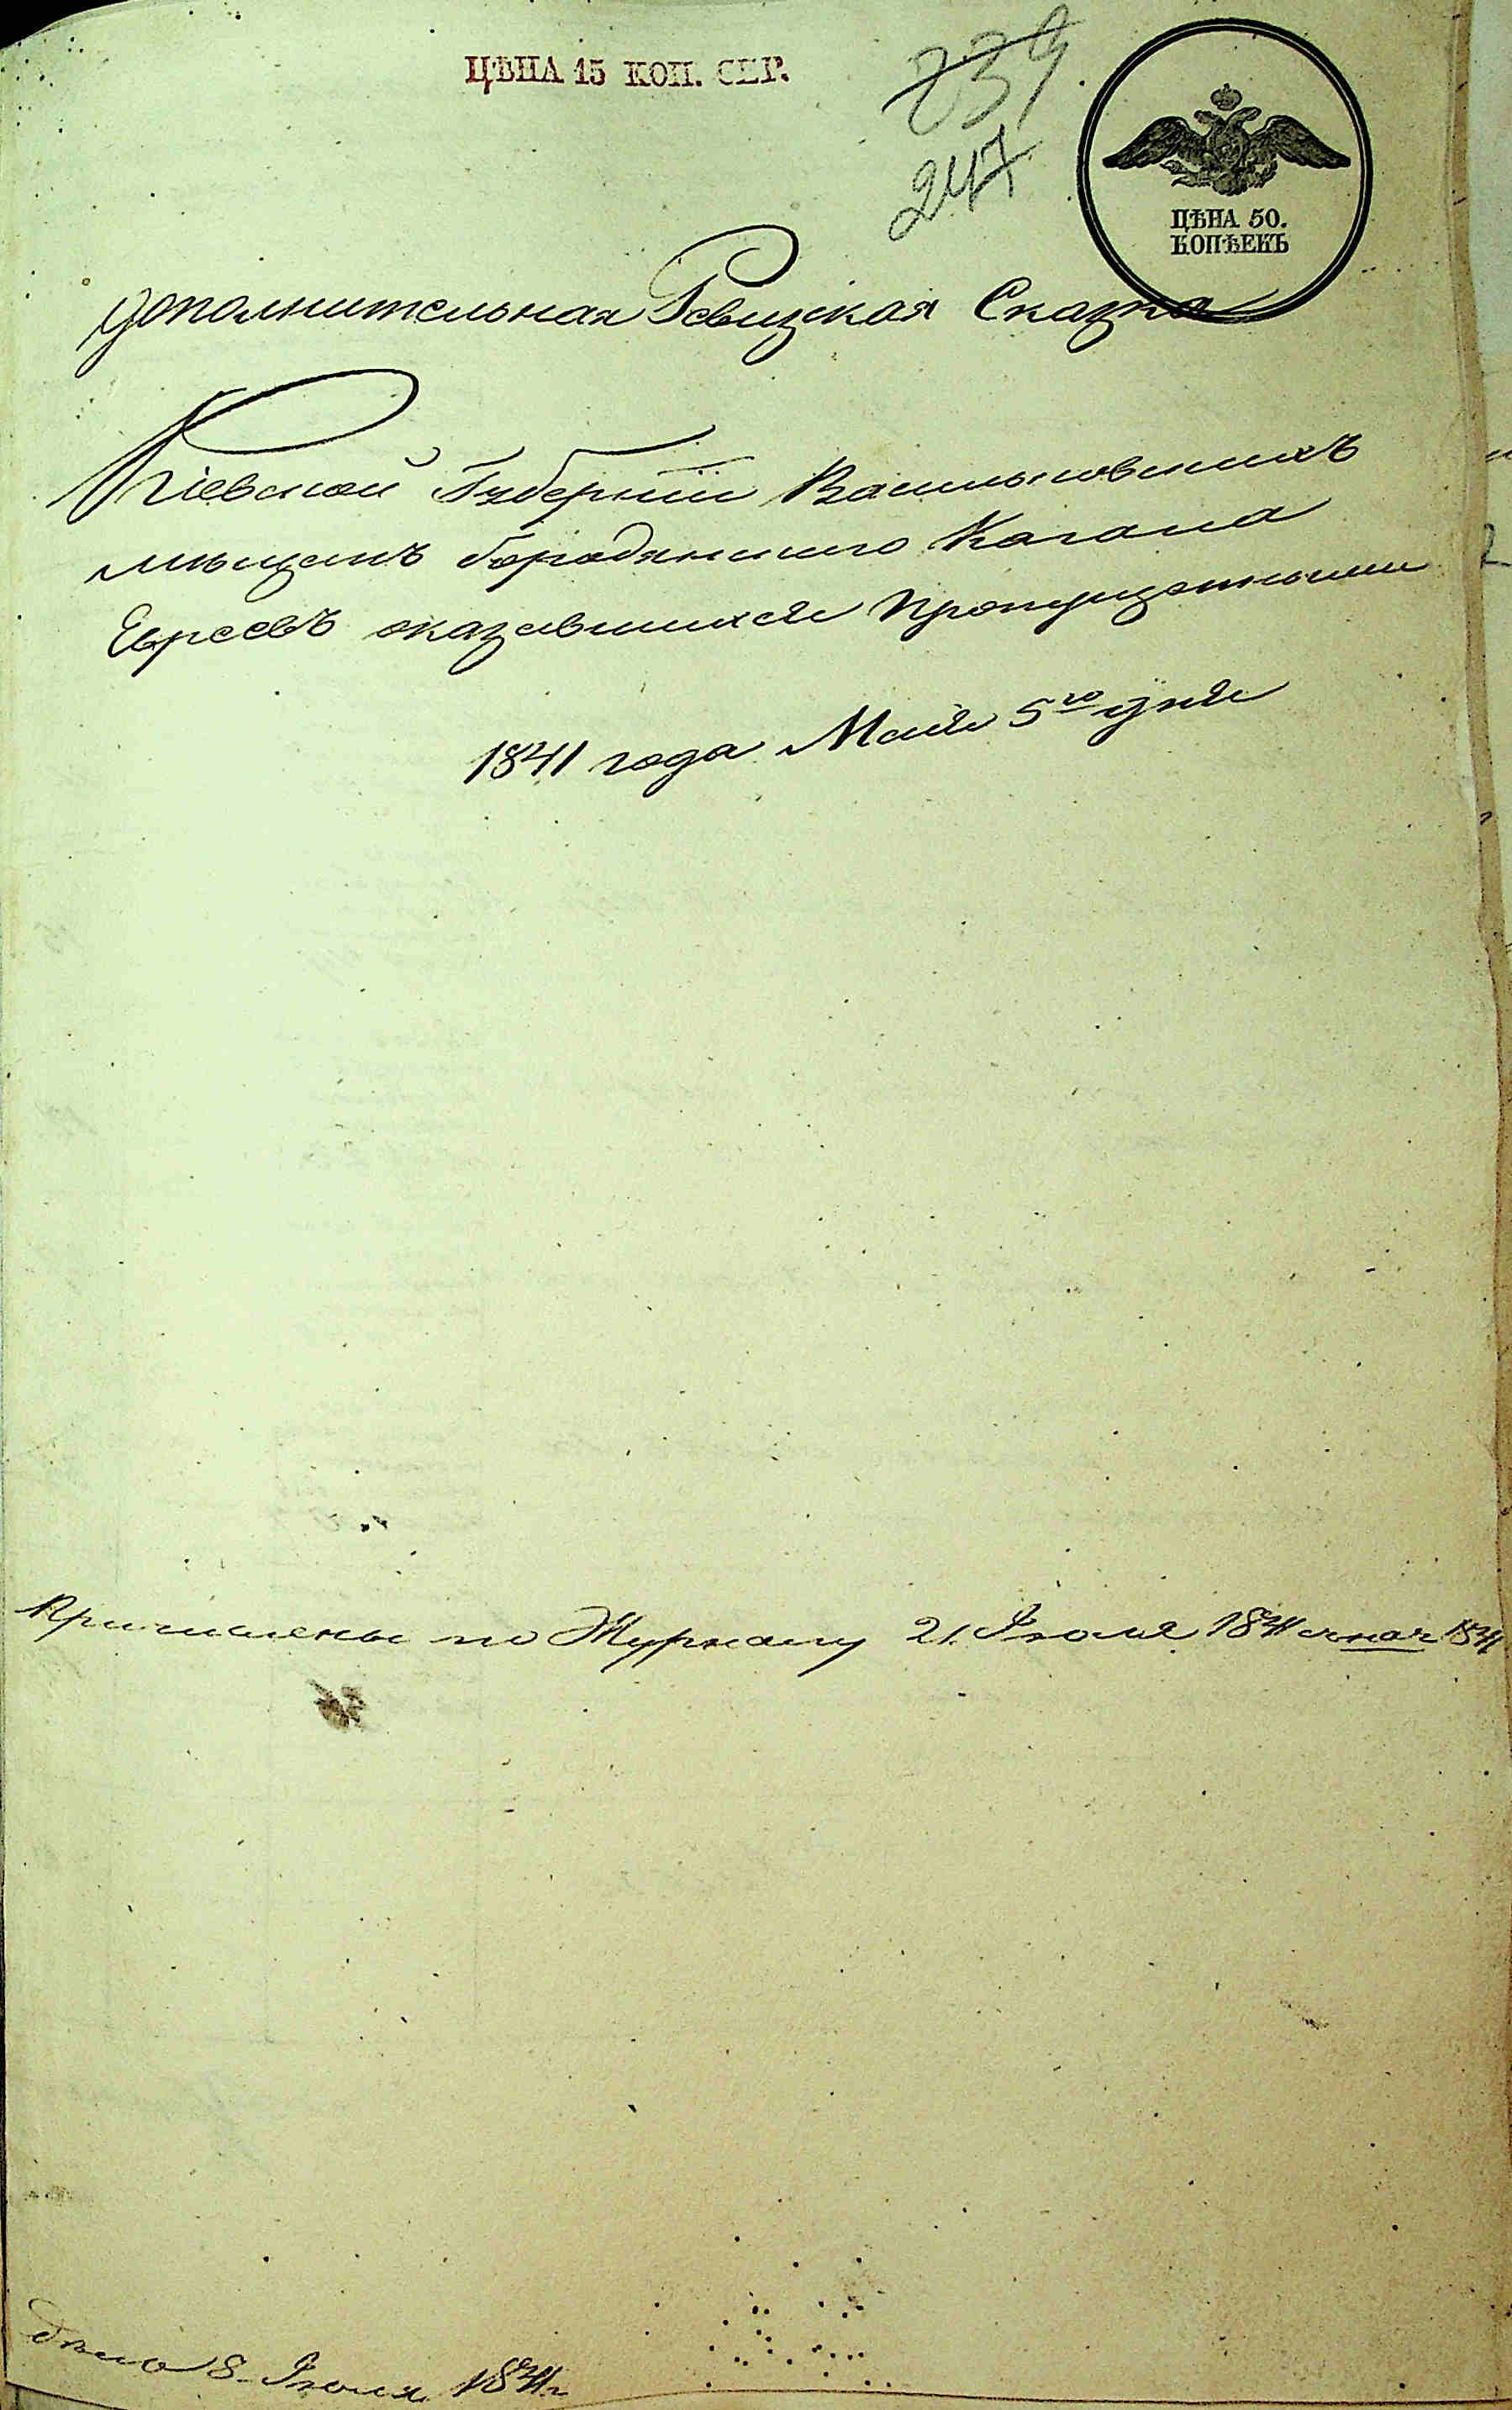 ЦѢНА 15 КОП. СЕР.
239
247
ЦѢНА 50.
КОПѢЕКЪ
дополнительная Ревизская Сказка
Кіевской Губерніи Васильковскихъ
мѣщанъ бородянского Кагала
Евреевъ оказавшихся пропущенными
1841 года Маія 5го дня
Причислены по Журналу 21 Іюля 1841 1841
дѣло 8 Іюля 1841г